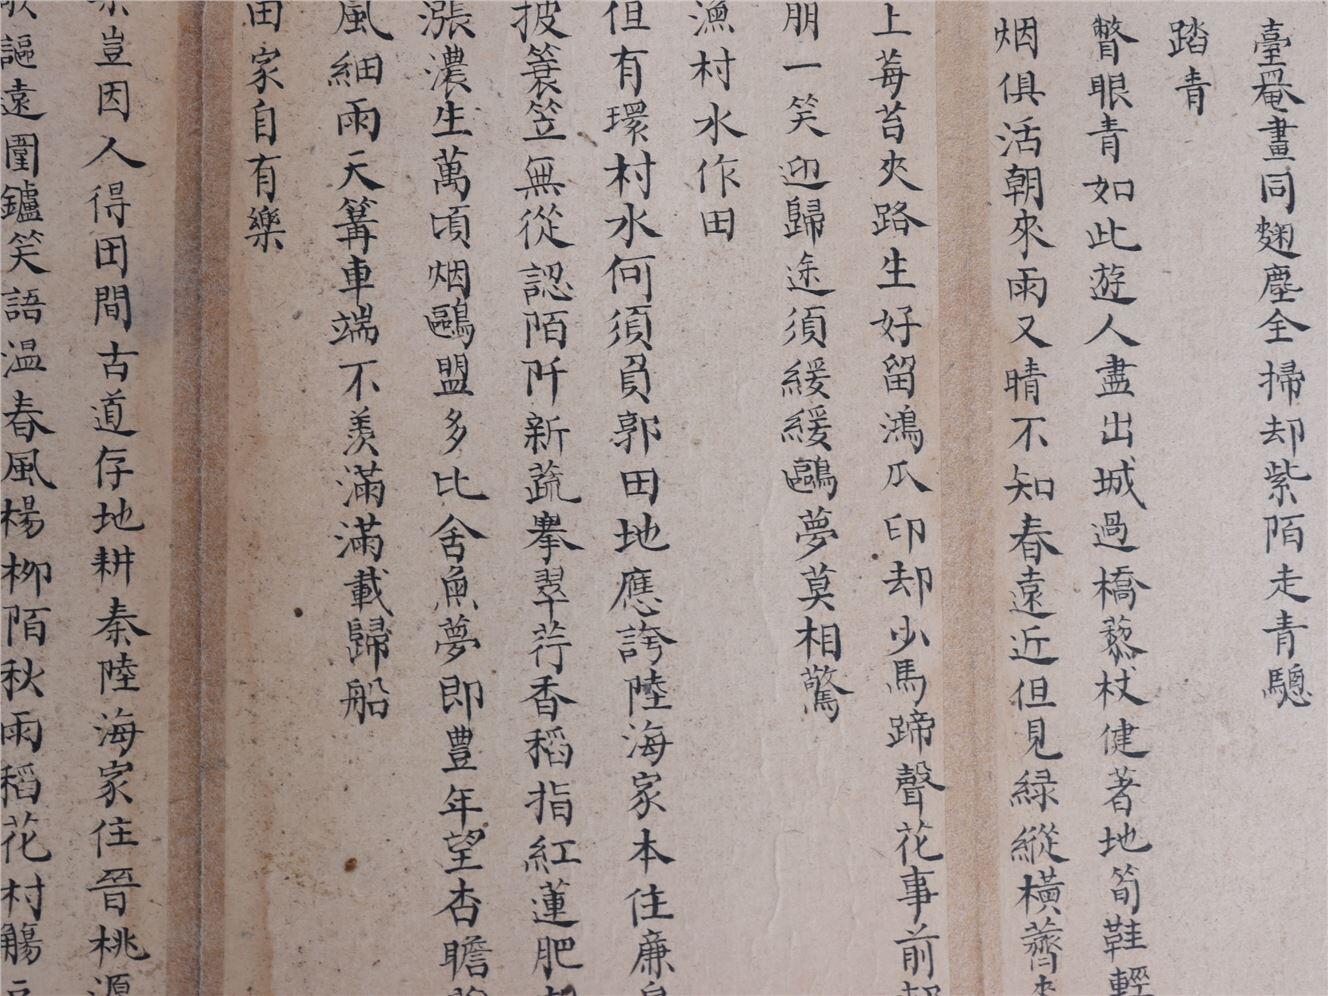 臺罨畫同麴塵全掃却紫陌走青驄
踏青
瞥眼青如此遊人盡出城過橋藜杖健著地筍鞋輕
烟俱活朝來雨又晴不知春遠近但見緑縱橫薺
上莓苔夾路生好留鴻爪印却少馬蹄聲花事前
朋一笑迎歸途須緩緩鷗夢莫相驚
漁村水作田
但有環村水何須負郭田地應誇陸海家本住廉
披簑笠無從認陌阡新蔬搴翠荇香稻指紅蓮肥
漲濃生萬頃烟鷗盟多比舍魚夢即豊年望杏瞻
風細雨天篝車端不羨滿滿載歸船
田家自有樂
豈因人得田間古道存地耕秦陸海家住晉桃源
謳遠圍鑪笑語温春風楊柳陌秋雨稻花村觴